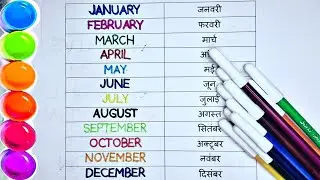 JANUARY जनवरी
FEBRUARY फरवरी
MARCH मार्च
APRIL
MAY मई
JUNE जून
JULY जुलाई
AUGUST अगस्त
SEPTEMBER सितंबर
OCTOBER अक्टूबर
NOVEMBER नवंबर
DECEMBER दिसंबर